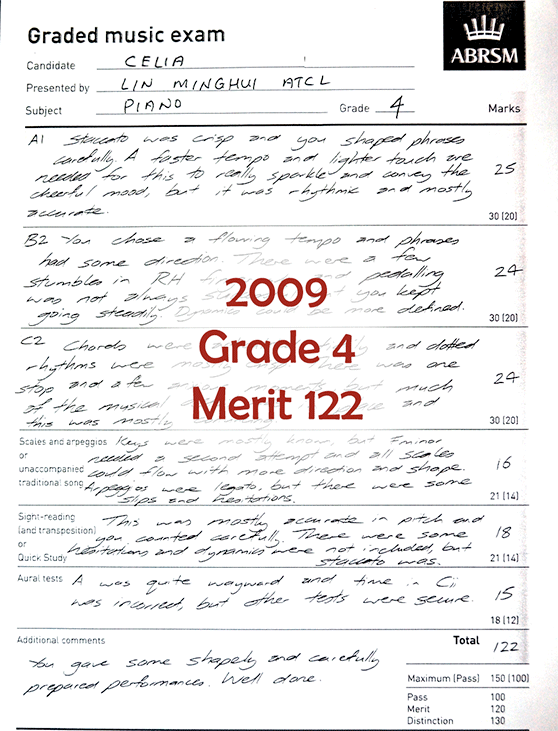 Graded music exam
ABRSM
Candidate CELIA
Presented by LIN MINGHUI ATCL
Subject PIANO Grade 4 Marks
A1 Staccato was crisp and you shaped phrases
carefully. A faster tempo and lighter touch are
needed for this to really sparkle and convey the
cheerful mood, but it was rhythmic and mostly
accurate.
25
30 (20)
B2 You chose a flowing tempo and phrases
had some direction. There were a few
stumbles in RH and pedalling
was not always you kept
going steadily. Dynamics could be more defined.
24
30 (20)
2009
Grade 4
Merit 122
C2 Chords were and dotted
rhythms were mostly There was one
stop and a few moments but much
of the musical and
this was mostly
24
30 (20)
Scales and arpeggios
or
unaccompanied
traditional song
Keys were mostly know, but F minor
needed a second attempt and all scales
could flow with more direction and shape.
Arpeggios were legato, but there were some
slips and hesitations.
16
21 (14)
Sight-reading
(and transposition)
or
Quick Study
This was mostly accurate in pitch and
you counted carefully. There were some
hesitations and dynamics were not included, but
staccato was.
18
21 (14)
Aural tests A was quite wayward and time in Cii
was incorrect, but other tests were secure.
15
18 (12)
Additional comments
You gave some shapely and carefully
prepared performances. Well done.
Total 122
Maximum (Pass) 150 (100)
Pass 100
Merit 120
Distinction 130